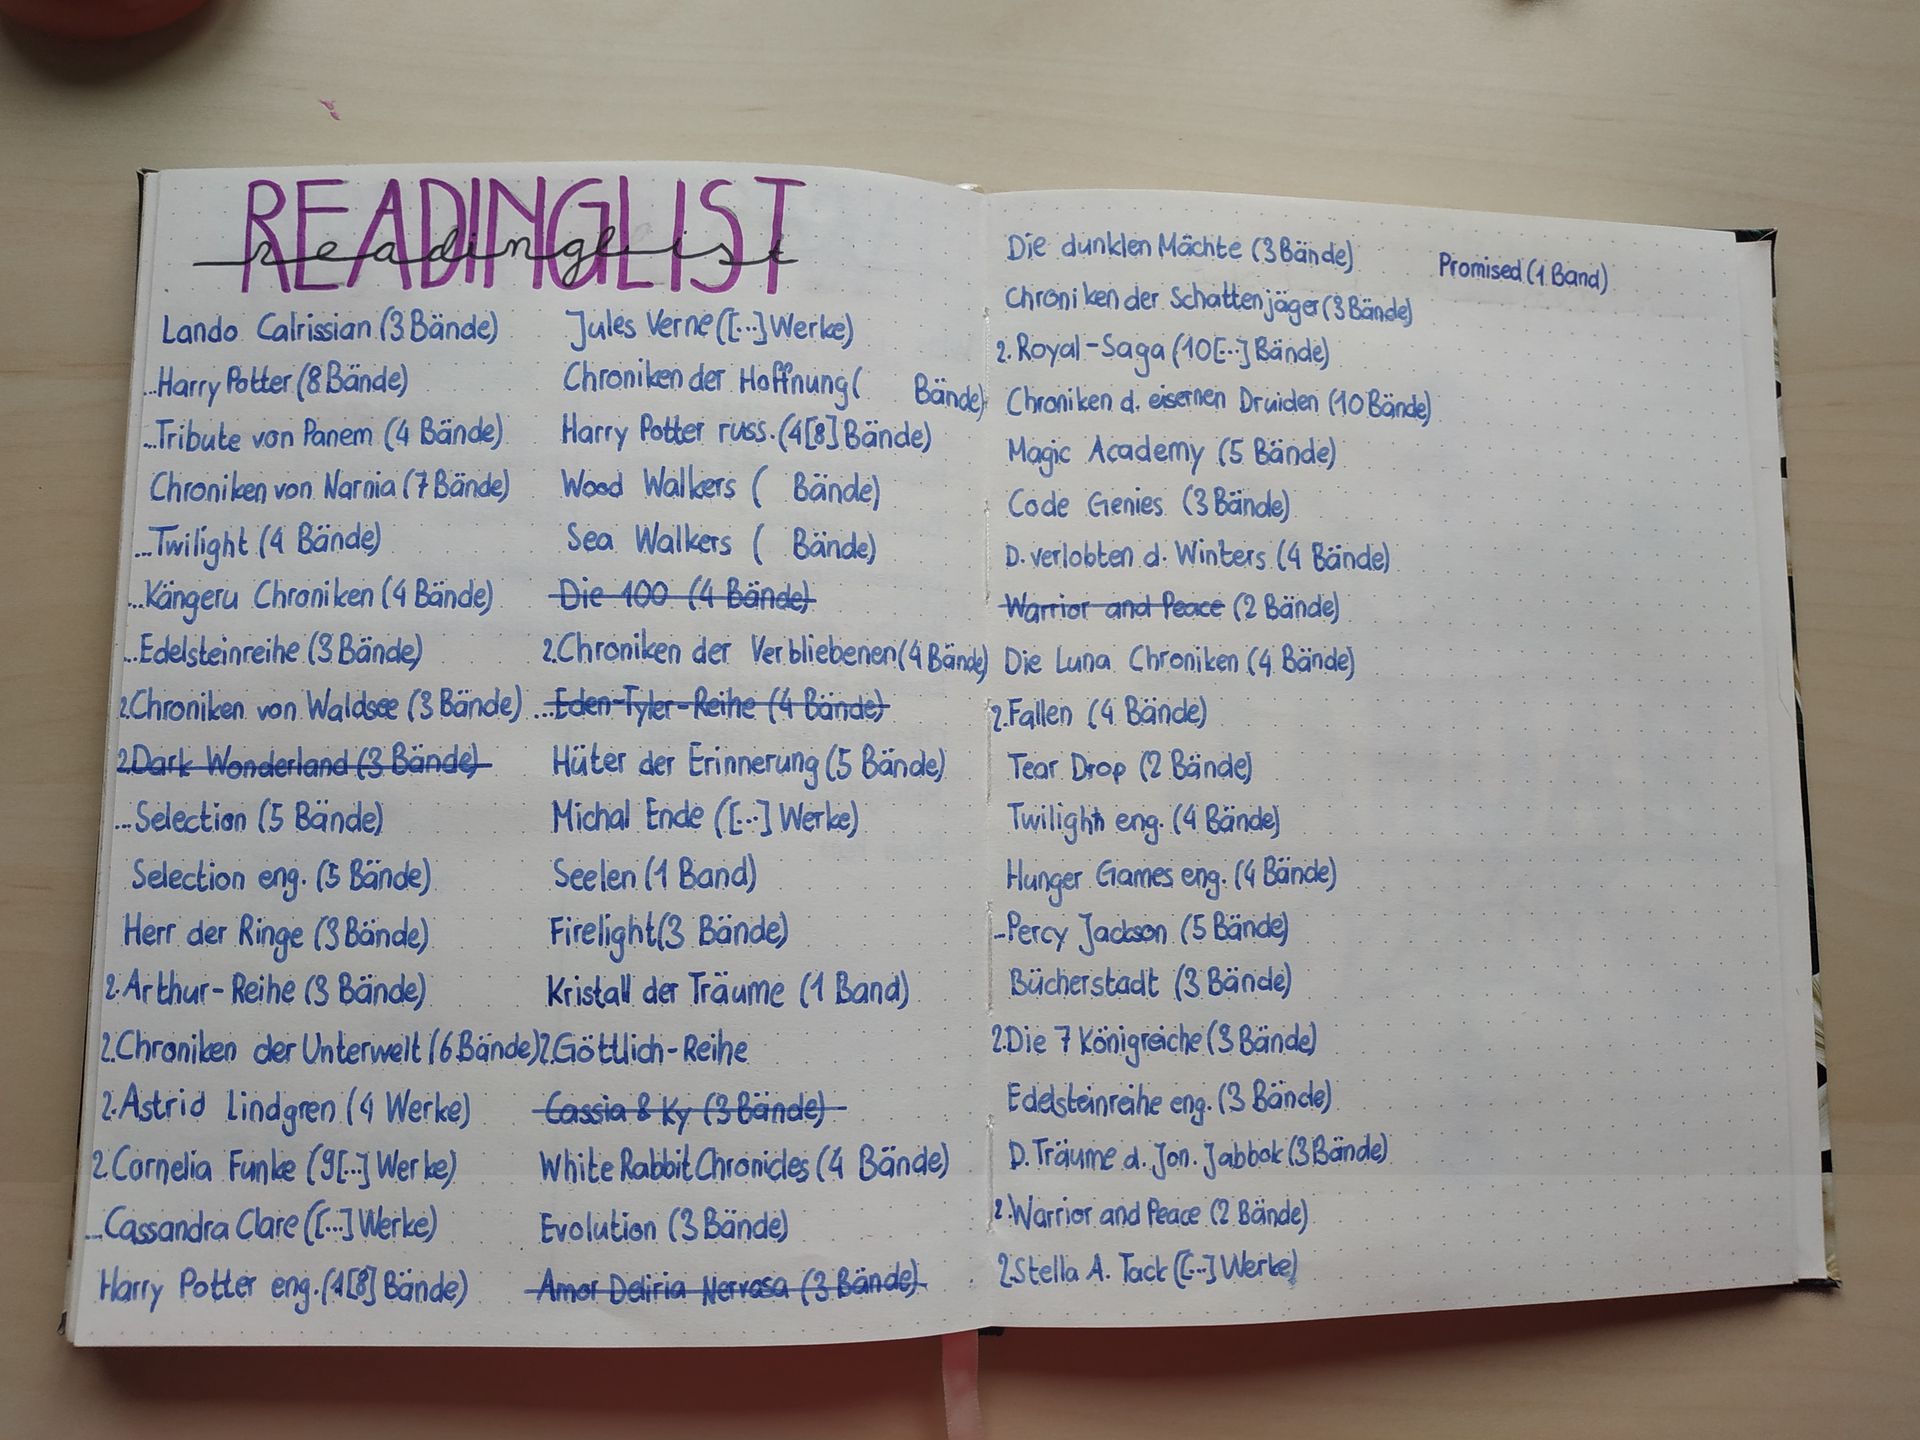 READINGLIST
readinglist
Lando Calrissian (3 Bände)
...Harry Potter (8 Bände)
...Tribute von Panem (4 Bände)
Chroniken von Narnia (7 Bände)
...Twilight (4 Bände)
...Kängeru Chroniken (4 Bände)
...Edelsteinreihe (3 Bände)
2.Chroniken von Waldsee (3 Bände)
2.Dark Wonderland (3 Bände)
...Selection (5 Bände)
Selection eng. (5 Bände)
Herr der Ringe (3 Bände)
2.Arthur-Reihe (3 Bände)
2.Chroniken der Unterwelt (6 Bände)
2.Astrid Lindgren (4 Werke)
2.Cornelia Funke (9[...] Werke)
...Cassandra Clare ([...] Werke)
Harry Potter eng. (1[8] Bände)
Jules Verne ([...] Werke)
Chroniken der Hoffnung ( Bände)
Harry Potter russ. (4[8] Bände)
Wood Walkers ( Bände)
Sea Walkers ( Bände)
Die 100 (4 Bände)
2.Chroniken der Verbliebenen (4 Bände)
...Eden-Tyler-Reihe (4 Bände)
Hüter der Erinnerung (5 Bände)
Michal Ende ([...] Werke)
Seelen (1 Band)
Firelight (3 Bände)
Kristall der Träume (1 Band)
2.Göttlich-Reihe
Cassia & Ky (3 Bände)
White Rabbit Chronicles (4 Bände)
Evolution (3 Bände)
Amor Deliria Nervosa (3 Bände)
Die dunklen Mächte (3 Bände)
Chroniken der Schattenjäger (3 Bände)
2.Royal-Saga (10[...] Bände)
Chroniken d. eisernen Druiden (10 Bände)
Magic Academy (5 Bände)
Code Genies (3 Bände)
D. verlobten d. Winters (4 Bände)
Warrior and Peace (2 Bände)
Die Luna Chroniken (4 Bände)
2.Fallen (4 Bände)
Tear Drop (2 Bände)
Twilight eng. (4 Bände)
Hunger Games eng. (4 Bände)
...Percy Jackson (5 Bände)
Bücherstadt (3 Bände)
2.Die 7 Königreiche (3 Bände)
Edelsteinreihe eng. (3 Bände)
D. Träume d. Jon. Jabbok (3 Bände)
2.Warrior and Peace (2 Bände)
2.Stella A. Tack ([...] Werke)
Promised (1 Band)